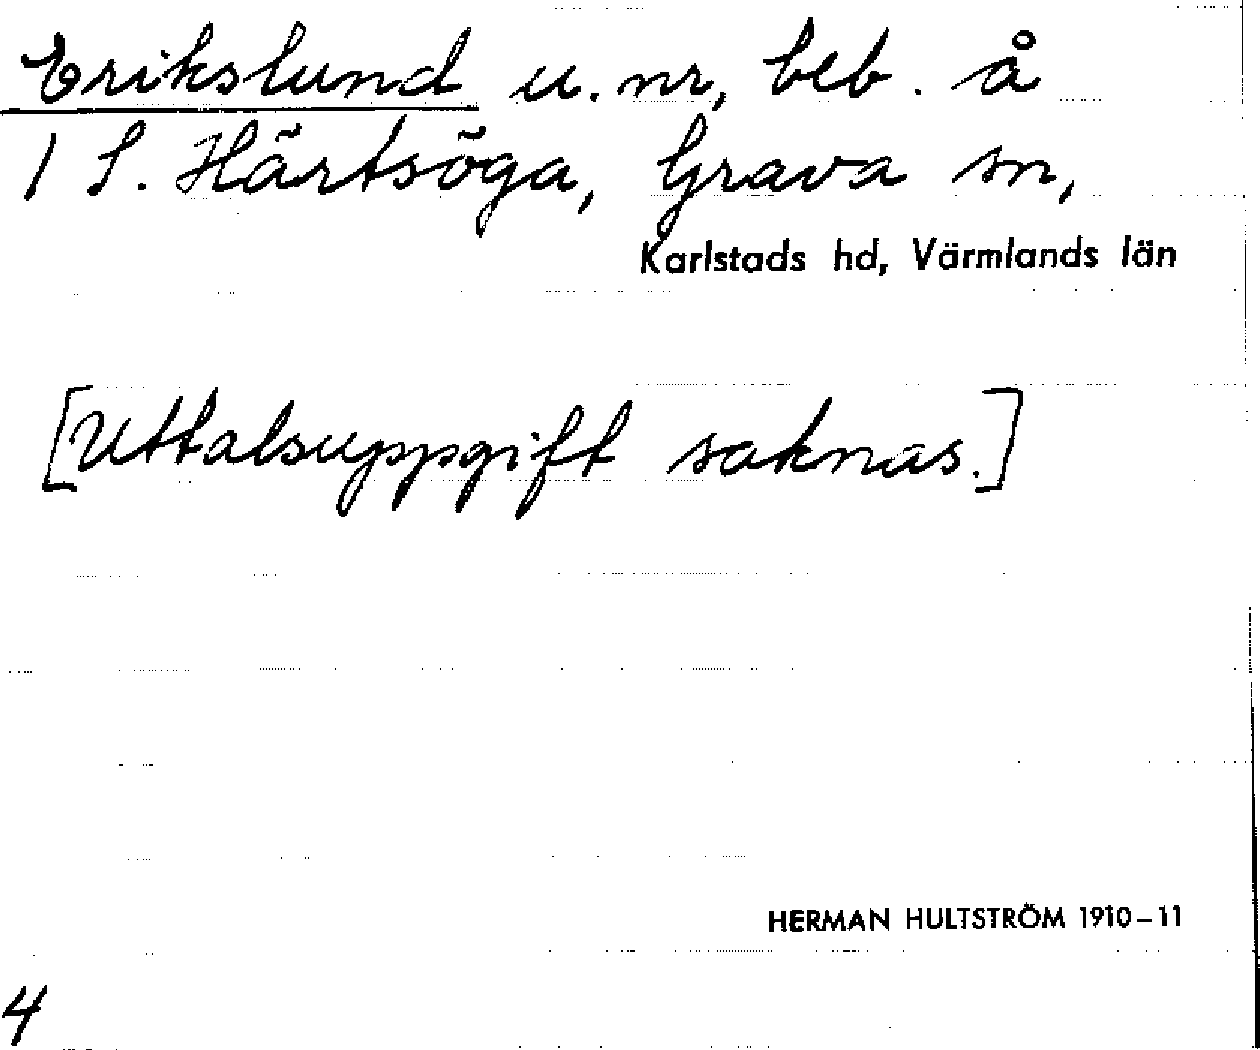 Erikslund u. nr, beb. å
1 S. Härtsöga, Grava sn,
Karlstads hd, Värmlands län
[Uttalsuppgift saknas.]
HERMAN HULTSTRÖM 1910–11
4